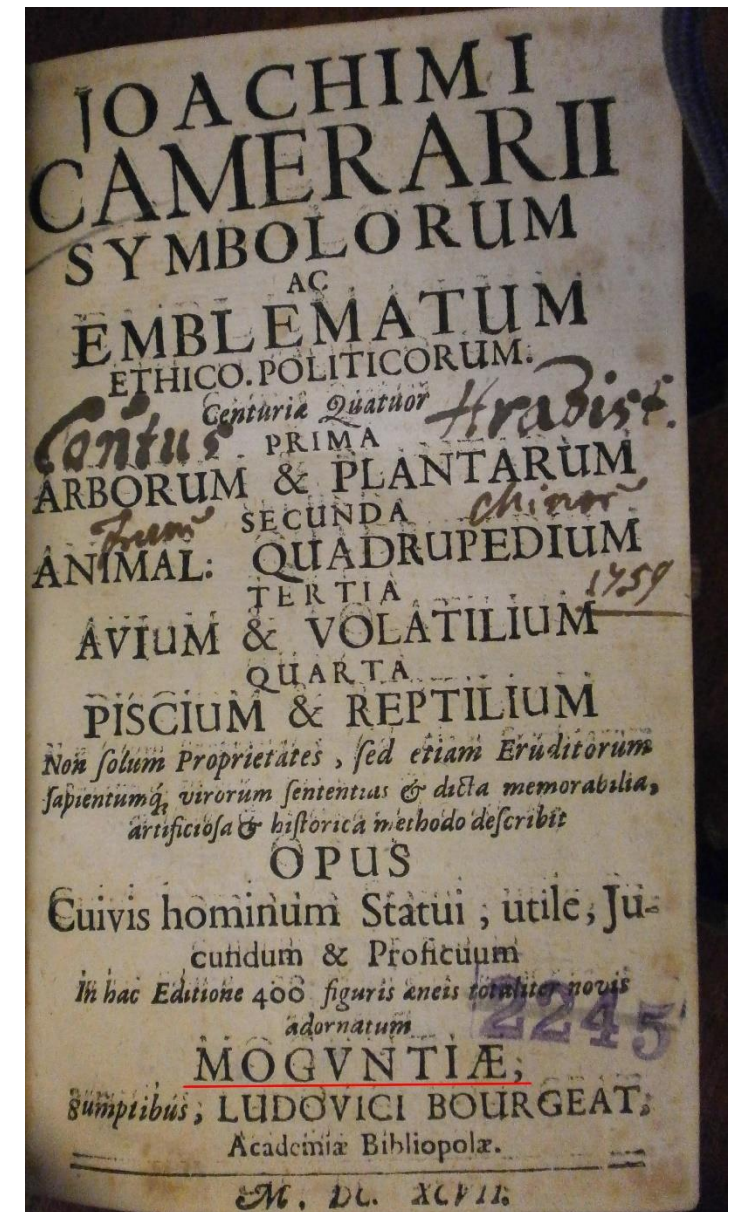 JOACHIMI
CAMERARII
SYMBOLORUM
AC
EMBLEMATUM
ETHICO.POLITICORUM.
Centuriæ Quatuor
Contus Hradist.
PRIMA
ARBORUM & PLANTARUM
SECUNDA
ANIMAL: QUADRUPEDIUM
1759
TERTIA
AVIUM & VOLATILIUM
QUARTA
PISCIUM & REPTILIUM
Non ſolum Proprietates, ſed etiam Eruditorum
ſapientumq́; virorum ſententias & dicta memorabilia,
artificioſa & hiſtorica methodo deſcribit
OPUS
Cuivis hominum Statui, utile, Ju-
cundum & Proficuum
In hac Editione 400 figuris æneis totaliter novis
adornatum
2245
MOGVNTIÆ,
Sumptibus, LUDOVICI BOURGEAT,
Academiæ Bibliopolæ.
M. DC. XCVII.